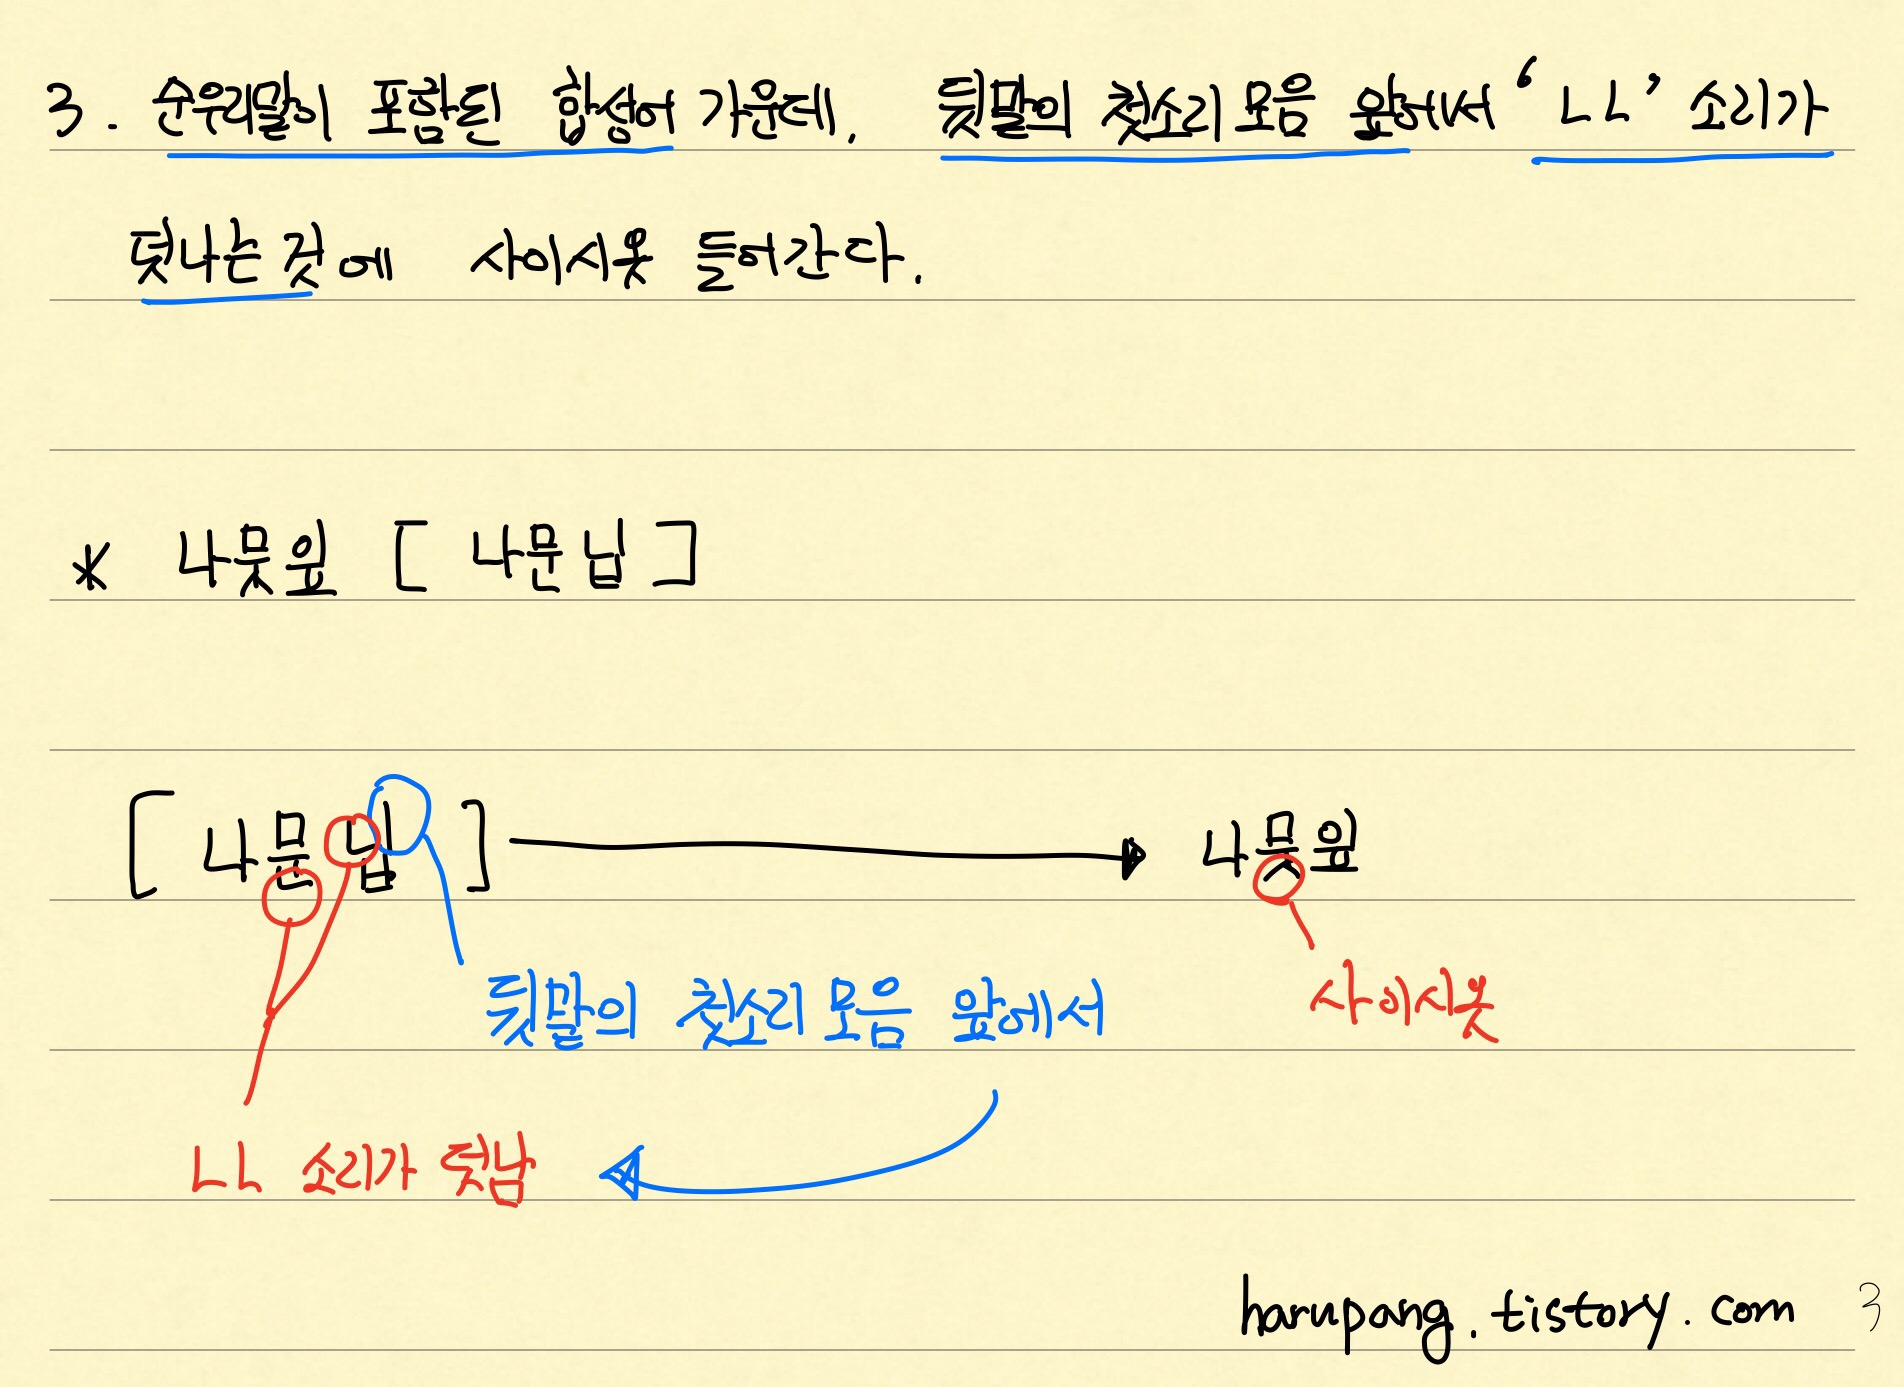 3. 순우리말이 포함된 합성어 가운데, 뒷말의 첫소리 모음 앞에서 'ㄴㄴ' 소리가
덧나는 것에 사이시옷 들어간다.
* 나뭇잎 [ 나문닙 ]
[ 나문닙 ] 나뭇잎
뒷말의 첫소리 모음 앞에서 사이시옷
ㄴㄴ 소리가 덧남
harupang.tistory.com 3